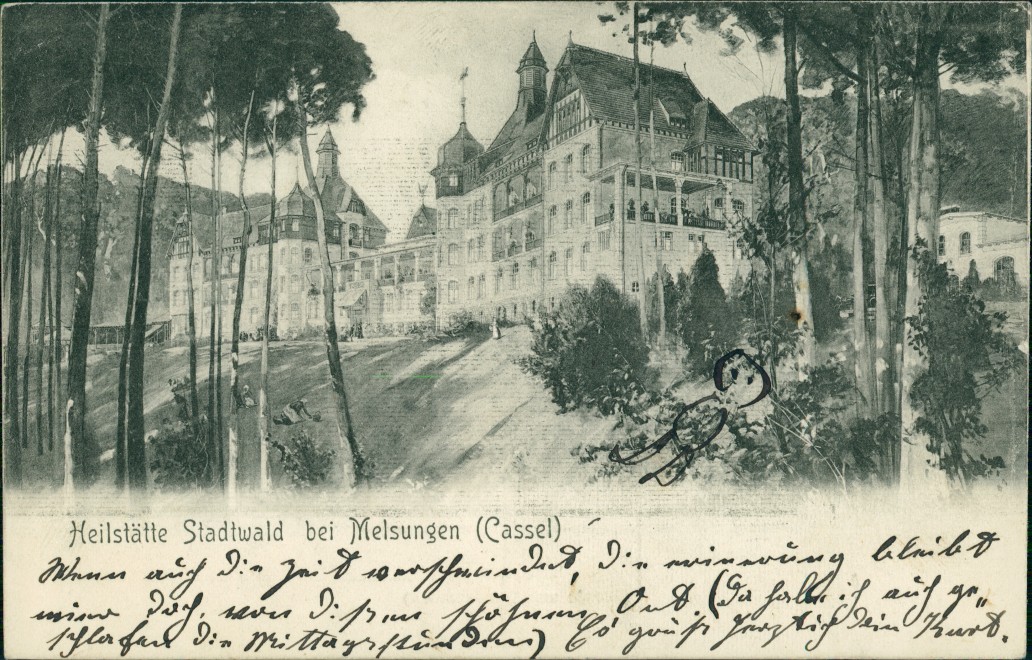 Heilstätte Stadtwald bei Melsungen (Cassel)
Wenn auch die Zeit verschwindet, die erinerung bleibt
mier doch, von diesem schöhnen Ort. (Da habe ich auch ge„
schlafen die Mittagsstunden) Es grüßt herzlich dein Kurt.